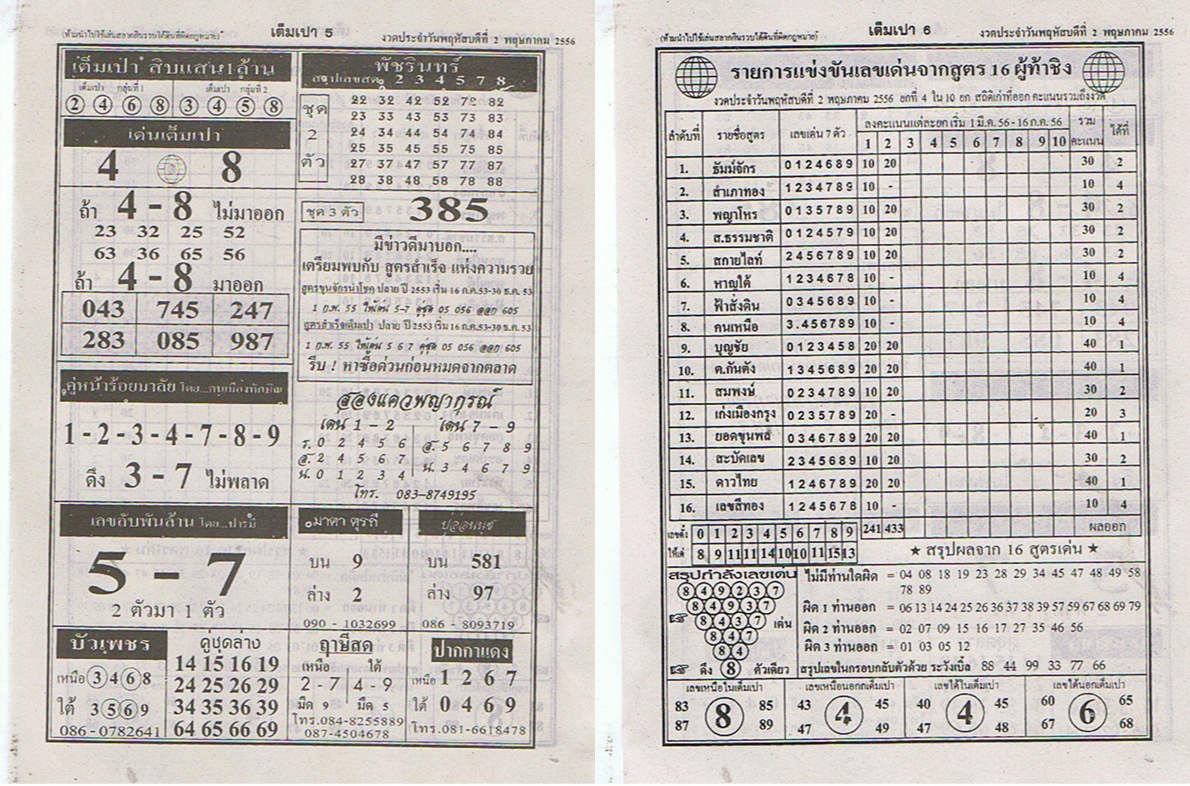 (ห้ามนำไปใช้เล่นสลากกินรวบได้คืนที่ผิดกฎหมาย) เต็มเปา 5 งวดประจำวันพฤหัสบดีที่ 2 พฤษภาคม 2556
เต็มเปา สิบแสน1ล้าน
เต็มเปา กลุ่มที่ 1 เต็มเปา กลุ่มที่ 2
2 4 6 8 3 4 5 8
เด่นเต็มเปา
4 8
ถ้า 4 - 8 ไม่มาออก
23 32 25 52
63 36 65 56
ถ้า 4 - 8 มาออก
043 745 247
283 085 987
คู่หน้าร้อยมาลัย
1 - 2 - 3 - 4 - 7 - 8 - 9
ดึง 3 - 7 ไม่พลาด
เลขลับพันล้าน โดย...ปารมี
5 - 7
2 ตัวมา 1 ตัว
บัวเพชร
เหนือ 3 4 6 8
ใต้ 3 5 6 9
086 - 0782641
คู่ชุดล่าง
14 15 16 19
24 25 26 29
34 35 36 39
64 65 66 69
พัชรินทร์
สรุปเลขสด 2 3 4 5 7 8
ชุด 2 ตัว
22 32 42 52 72 82
23 33 43 53 73 83
24 34 44 54 74 84
25 35 45 55 75 85
27 37 47 57 77 87
28 38 48 58 78 88
ชุด 3 ตัว 385
มีข่าวดีมาบอก....
เตรียมพบกับ สูตรสำเร็จ แห่งความรวย
สูตรขุนจักรนำโชค ปลาย ปี 2553 เริ่ม 16 ก.ค.53-30 ธ.ค. 53
1 ก.พ. 55 ให้เด่น 5-7 คู่ชุด 05 056 ออก 605
สูตรสำเร็จเต็มเปา ปลาย ปี 2553 เริ่ม 16 ก.ค.53-30 ธ.ค. 53
1 ก.พ. 55 ให้เด่น 5 6 7 คู่ชุด 05 056 ออก 605
รีบ ! หาซื้อด่วนก่อนหมดจากตลาด
สองแควพยากรณ์
เด่น 1 - 2 เด่น 7 - 9
ร. 0 2 4 5 6 ส. 5 6 7 8 9
ส. 2 4 5 6 7 น. 3 4 6 7 9
น. 0 1 2 3 4
โทร. 083-8749195
มาดา ดุรลี
บน 9
ล่าง 2
090 - 1032699
ป๋ออ่นนช
บน 581
ล่าง 97
086 - 8093719
ฤาษีสด
เหนือ ใต้
2 - 7 4 - 9
มืด 9 มืด 5
โทร.084-8255889
087-4504678
ปากกาแดง
เหนือ 1 2 6 7
ใต้ 0 4 6 9
โทร.081-6618478
(ห้ามนำไปใช้เล่นสลากกินรวบได้คืนที่ผิดกฎหมาย) เต็มเปา 6 งวดประจำวันพฤหัสบดีที่ 2 พฤษภาคม 2556
รายการแข่งขันเลขเด่นจากสูตร 16 ผู้ท้าชิง
งวดประจำวันพฤหัสบดีที่ 2 พฤษภาคม 2556 ยกที่ 4 ใน 10 ยก สถิติเก่าที่ออก คะแนนรวมถึงงวด
ลำดับที่ รายชื่อสูตร เลขเด่น 7 ตัว ลงคะแนนแต่ละยก เริ่ม 1 มี.ค. 56 - 16 ก.ค. 56 รวมคะแนน ได้ที่
1 2 3 4 5 6 7 8 9 10
1. ธัมม์จักร 0 1 2 4 6 8 9 10 20 30 2
2. สำเภาทอง 1 2 3 4 7 8 9 10 - 10 4
3. พญาโหร 0 1 3 5 7 8 9 10 20 30 2
4. ส.ธรรมชาติ 0 1 2 4 5 7 9 10 20 30 2
5. สกายไลท์ 2 4 5 6 7 8 9 10 20 30 2
6. หาญใต้ 1 2 3 4 6 7 8 10 - 10 4
7. ฟ้าสั่งดิน 0 3 4 5 6 8 9 10 - 10 4
8. คนเหนือ 3.4 5 6 7 8 9 10 - 10 4
9. บุญชัย 0 1 2 3 4 5 8 20 20 40 1
10. ต.กันตัง 1 3 4 5 6 8 9 20 20 40 1
11. สมพงษ์ 0 2 3 4 7 8 9 10 20 30 2
12. เก่งเมืองกรุง 0 2 3 5 7 8 9 20 - 20 3
13. ยอดขุนพล 0 3 4 6 7 8 9 20 20 40 1
14. สะบัดเลข 2 3 4 5 6 8 9 10 20 30 2
15. ดาวไทย 1 2 4 6 7 8 9 20 20 40 1
16. เลขสีทอง 1 2 4 5 6 7 8 10 - 10 4
เลขตั้ง 0 1 2 3 4 5 6 7 8 9 241 433 ผลออก
ให้แต้ 8 9 11 11 14 10 10 11 15 13 ★ สรุปผลจาก 16 สูตรเด่น ★
สรุปกำลังเลขเด่น
8 4 9 2 3 7
8 4 9 3 7
8 4 3 7 เด่น
8 4 7
8 4
ดึง 8 ตัวเดียว
ไม่มีท่านใดผิด = 04 08 18 19 23 28 29 34 45 47 48 49 58
78 89
ผิด 1 ท่านออก = 06 13 14 24 25 26 36 37 38 39 57 59 67 68 69 79
ผิด 2 ท่านออก = 02 07 09 15 16 17 27 35 46 56
ผิด 3 ท่านออก = 01 03 05 12
สรุปเลขในกรอบกลับตัวด้วย ระวังเบิ้ล 88 44 99 33 77 66
เลขเหนือในเต็มเปา เลขเหนือนอกเต็มเปา เลขใต้ในเต็มเปา เลขใต้นอกเต็มเปา
83 8 85 43 4 45 40 4 45 60 6 65
87 89 47 49 47 48 67 68